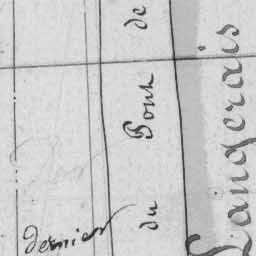 dernier
du Pont de
Langerais